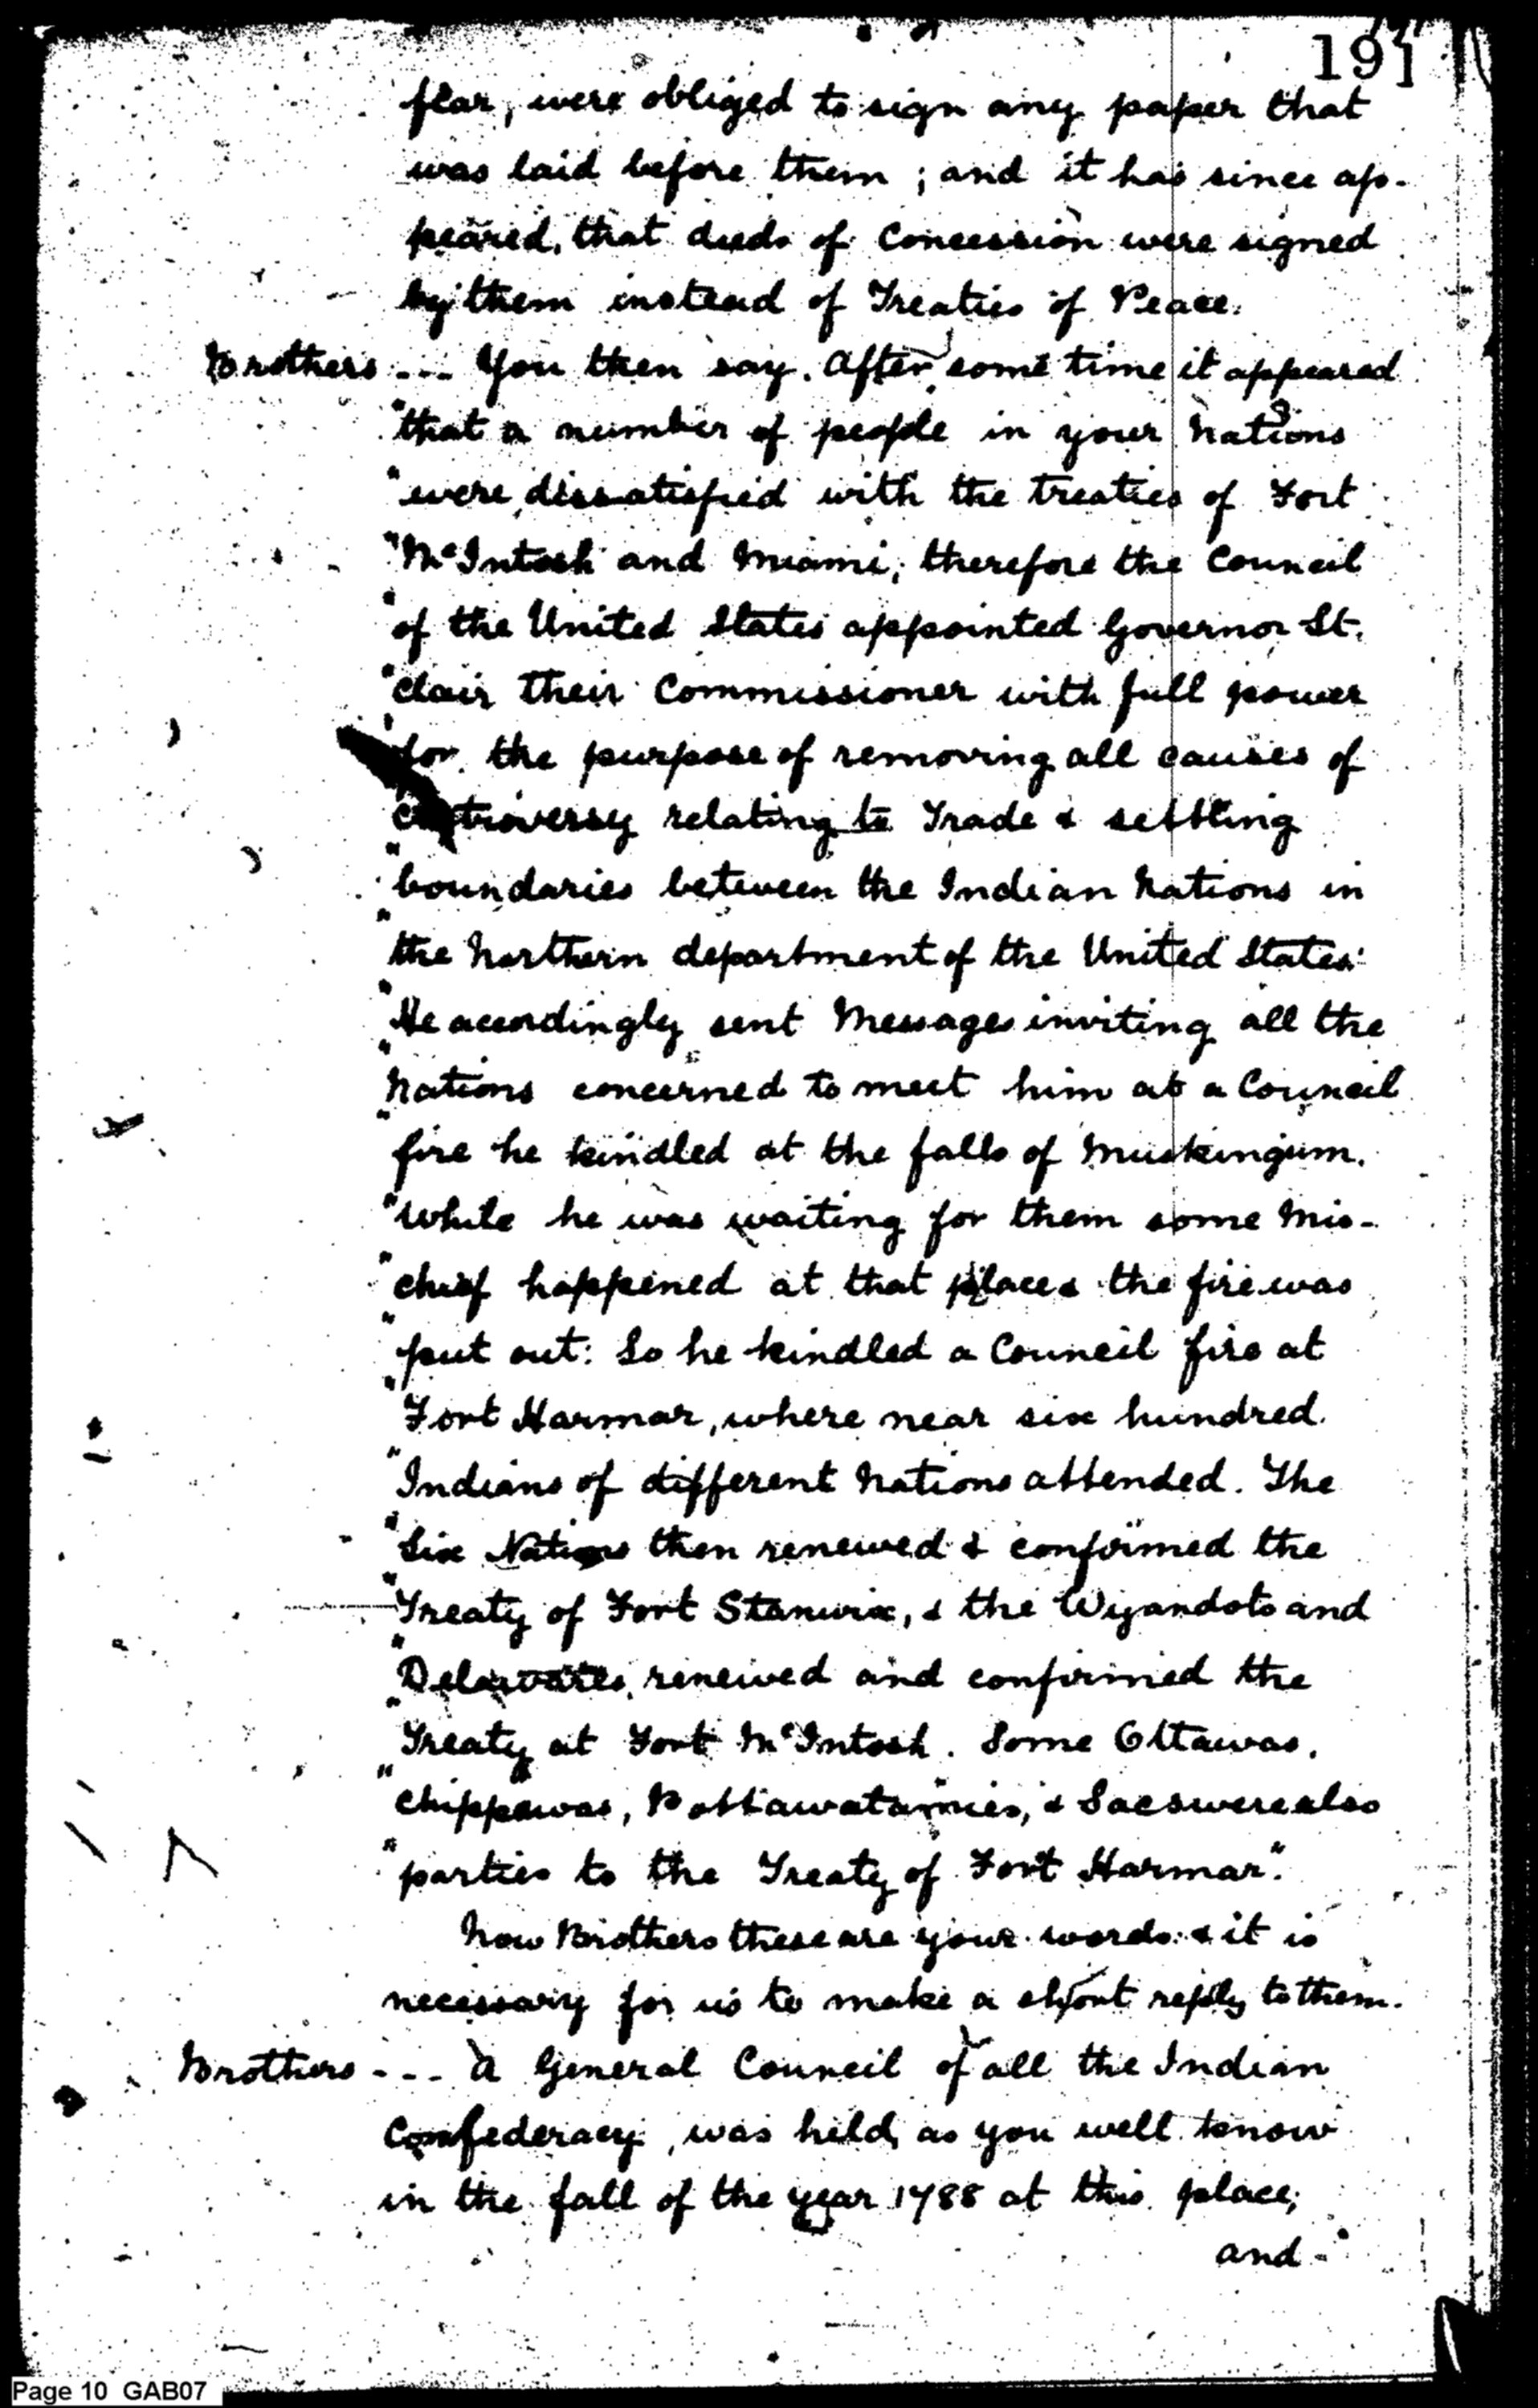 191
fear, were obliged to sign any paper that
was laid before them; and it has since ap-
peared, that deeds of Concession were signed
by them instead of Treaties of Peace.
Brothers --- You then say. After some time it appeared
"that a number of people in your Nations
"were dissatisfied with the treaties of Fort
"McIntosh and Miami; therefore the Council
"of the United States appointed Governor St.
"Clair their Commissioner with full power
"for the purpose of removing all causes of
"controversy relating to Trade & settling
"boundaries between the Indian Nations in
"the Northern department of the United States:
"He accordingly sent Messages inviting all the
"Nations concerned to meet him at a Council
"fire he kindled at the falls of Muskingum.
"While he was waiting for them some Mis-
"chief happened at that place & the fire was
"put out: So he kindled a Council fire at
"Fort Harmar, where near six hundred
"Indians of different Nations attended. The
"Six Nations then renewed & confirmed the
"Treaty of Fort Stanwix, & the Wyandots and
"Delawares, renewed and confirmed the
"Treaty at Fort McIntosh. Some Ottawas,
"Chippewas, Pottawatamies, & Sacs were also
"parties to the Treaty of Fort Harmar".
Now Brothers these are your words: & it is
necessary for us to make a short reply to them.
Brothers --- A General Council of all the Indian
Confederacy, was held, as you well know
in the fall of the year 1788 at this place;
and -
Page 10 GAB07